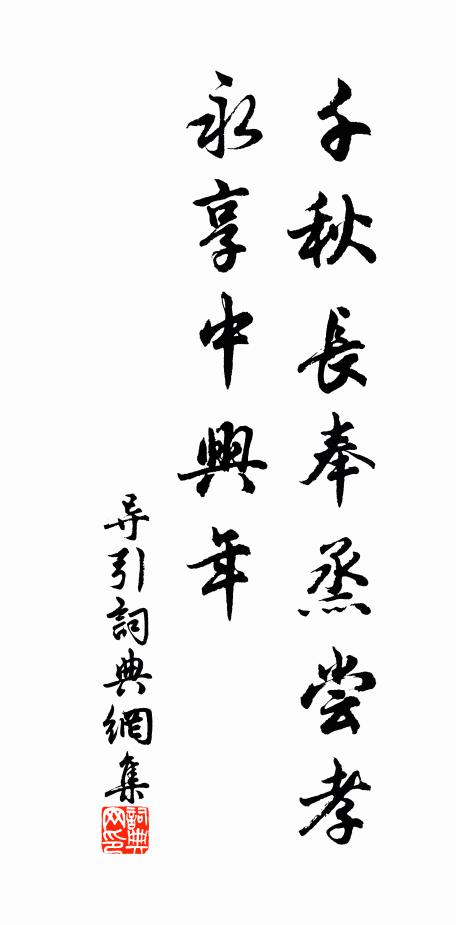 千秋長奉烝尝孝
永享中興年
导引詞典網集
詞典网印